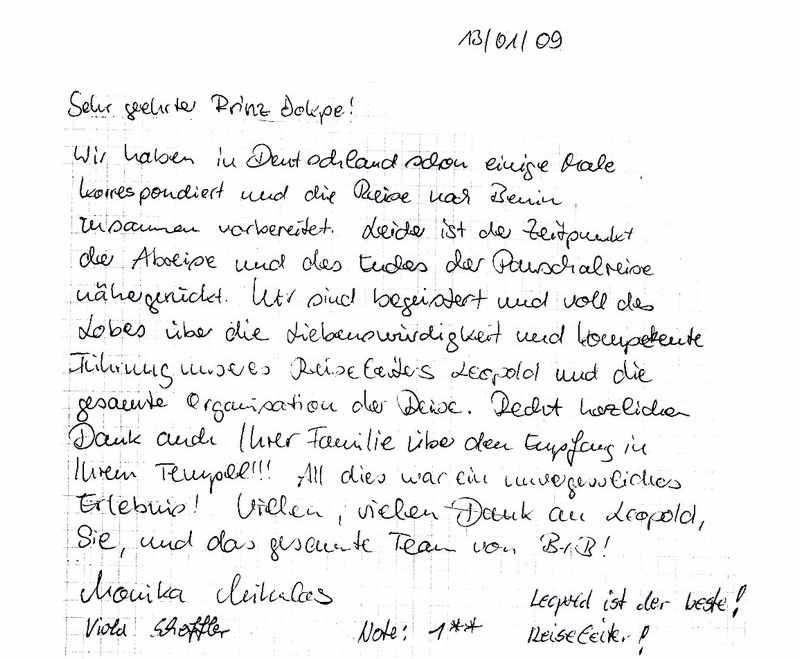 13/01/09
Sehr geehrter Prinz Dokpe!
Wir haben in Deutschland schon einige Male
korrespondiert und die Reise nach Benin
zusammen vorbereitet. Leider ist der Zeitpunkt
der Abreise und des Endes der Pauschalreise
nähergerückt. Wir sind begeistert und voll des
Lobes über die Liebenswürdigkeit und kompetente
Führung unseres Reiseleiters Leopold und die
gesamte Organisation der Reise. Recht herzlichen
Dank auch Ihrer Familie über den Empfang in
Ihrem Tempel!!! All dies war ein unvergessliches
Erlebnis! Vielen, vielen Dank an Leopold,
Sie, und das gesamte Team von
Monika Mikulas
Leopold ist der beste!
Viola
Note: 1**
Reiseleiter!